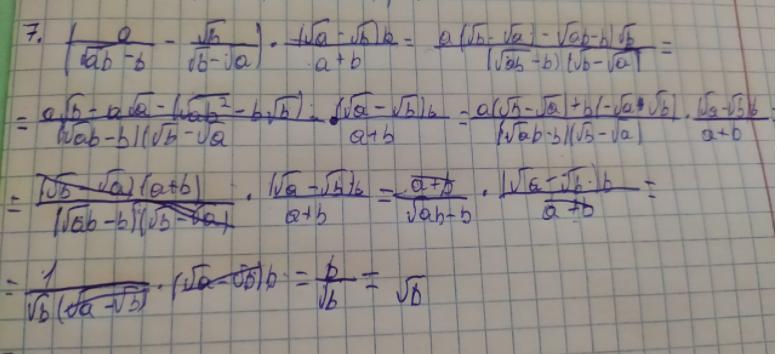 7. (a/(√ab - b) - √b/(√b - √a)) · (√a - √b)b/(a + b) = (a(√b - √a) - √ab-b)√b)/((√ab - b)(√b - √a) =
= (a√b - a√a - (√ab² - b√b))/((√ab - b)(√b - √a) · (√a - √b)b/(a+b) = (a(√b - √a) + b(-√a + √b))/((√ab - b)(√b - √a)) · (√a - √b)b/(a+b) =
= (√b - √a)(a+b)/((√ab - b)(√b - √a)) · (√a - √b)b/(a+b) = (a+b)/(√ab - b) · (√a - √b)b/(a+b) =
= 1/(√b(√a - √b)) · (√a - √b)b = b/√b = √b